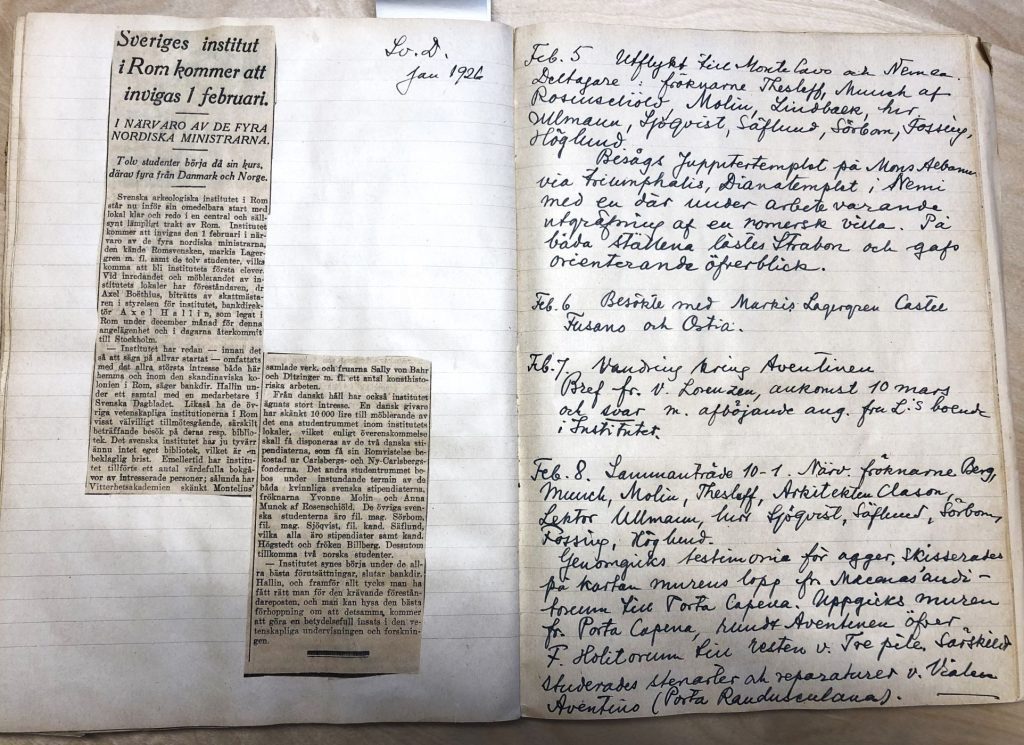 Sveriges institut
i Rom kommer att
invigas 1 februari.
I NÄRVARO AV DE FYRA
NORDISKA MINISTRARNA.
Tolv studenter börja då sin kurs,
därav fyra från Danmark och Norge.
Svenska arkeologiska institutet i Rom
står nu inför sin omedelbara start med
lokal klar och redo i en central och säll-
synt lämpligt trakt av Rom. Institutet
kommer att invigas den 1 februari i när-
varo av de fyra nordiska ministrarna,
den kände Romsvensken, markis Lager-
gren m. fl. samt de tolv studenter, vilka
komma att bli institutets första elever.
Vid inredandet och möblerandet av in-
stitutets lokaler har föreståndaren, dr
Axel Boëthius, biträtts av skattmästa-
ren i styrelsen för institutet, bankdirek-
tör Axel Hallin, som legat i
Rom under december månad för denna
angelägenhet och i dagarna återkommit
till Stockholm.
— Institutet har redan — innan det
så att säga på allvar startat — omfattats
med det allra största intresse både här
hemma och inom den skandinaviska ko-
lonien i Rom, säger bankdir. Hallin un-
der ett samtal med en medarbetare i
Svenska Dagbladet. Likaså ha de öv-
riga vetenskapliga institutionerna i Rom
visst välvilligt tillmötesgående, särskilt
beträffande besök på deras resp. bibliо-
tek. Det svenska institutet har ju tyvärr
ännu intet eget bibliotek, vilket är en
beklaglig brist. Emellertid har institu-
tet tillförts ett antal värdefulla bokgå-
vor av intresserade personer; sålunda har
Vitterhetsakademien skänkt Montelius'
samlade verk, och fruarna Sally von Bahr
och Ditzinger m. fl. ett antal konsthisto-
riska arbeten.
Från danskt håll har också institutet
ägnats stort intresse. En dansk givare
har skänkt 10 000 lire till möblerande av
det ena studentrummet inom institutets
lokaler, vilket enligt överenskommelse
skall få disponeras av de två danska sti-
pendiaterna, som få sin Romvistelse be-
kostad ur Carlsbergs- och Ny-Carlsbergs-
fonderna. Det andra studentrummet be-
bos under instundande termin av de
båda kvinnliga svenska stipendiaterna,
fröknarna Yvonne Molin och Anna
Munck af Rosenschiöld. De övriga sven-
ska studenterna äro fil. mag. Sörbom,
fil. mag. Sjöqvist, fil. kand. Säflund,
vilka alla äro stipendiater samt kand.
Högstedt och fröken Billberg. Dessutom
tillkomma två norska studenter.
— Institutet synes börja under de all-
ra bästa förutsättningar, slutar bankdir.
Hallin, och framför allt tycks man ha
fått rätt man för den krävande förestån-
dareposten, och man kan hysa den bästa
förhoppning om att detsamma, kommer
att göra en betydelsefull insats i den ve-
tenskapliga undervisningen och forsknin-
gen.
Sv. D.
jan 1926
Feb. 5 Utflykt till Monte Cavo och Nemea.
Deltagare: fröknarne Thesleff, Munck af
Rosenschiöld, Molin, Lindbaek, hrr
Ullmann, Sjöqvist, Säflund, Sörbom, Fossing,
Höglund.
Besågs Juppitertemplet på Mons Albanus
via triumphalis, Dianatemplet i Nemi
med en där under arbete varande
utgräfning af en romersk villa. På
båda ställena lästes Strabon och gafs
orienterande öfverblick.
Feb. 6 Besökte med Markis Lagergren Castel
Fusano och Ostia.
Feb. 7. Vandring kring Aventinen
Bref fr. V. Lorenzen, ankomst 10 mars
och svar m. afböjande ang. fru L:s boende
i Institutet.
Feb. 8. Sammanträde 10-1. Närv. fröknarne Berg,
Munck, Molin, Thesleff, Arkitekten Clason,
Lektor Ullmann, hrr Sjöqvist, Säflund, Sörbom,
Fossing, Höglund.
Genomgicks testimonia för agger, skisserades
på kartan murens lopp fr. Mecenas' audi-
torium till Porta Capena. Uppgicks muren
fr. Porta Capena, rundt Aventinen öfver
F. Holitorum till resten v. Tre pile. Särskildt
studerades stenarter och reparaturer v. Vialen
Aventino (Porta Raudusculana).